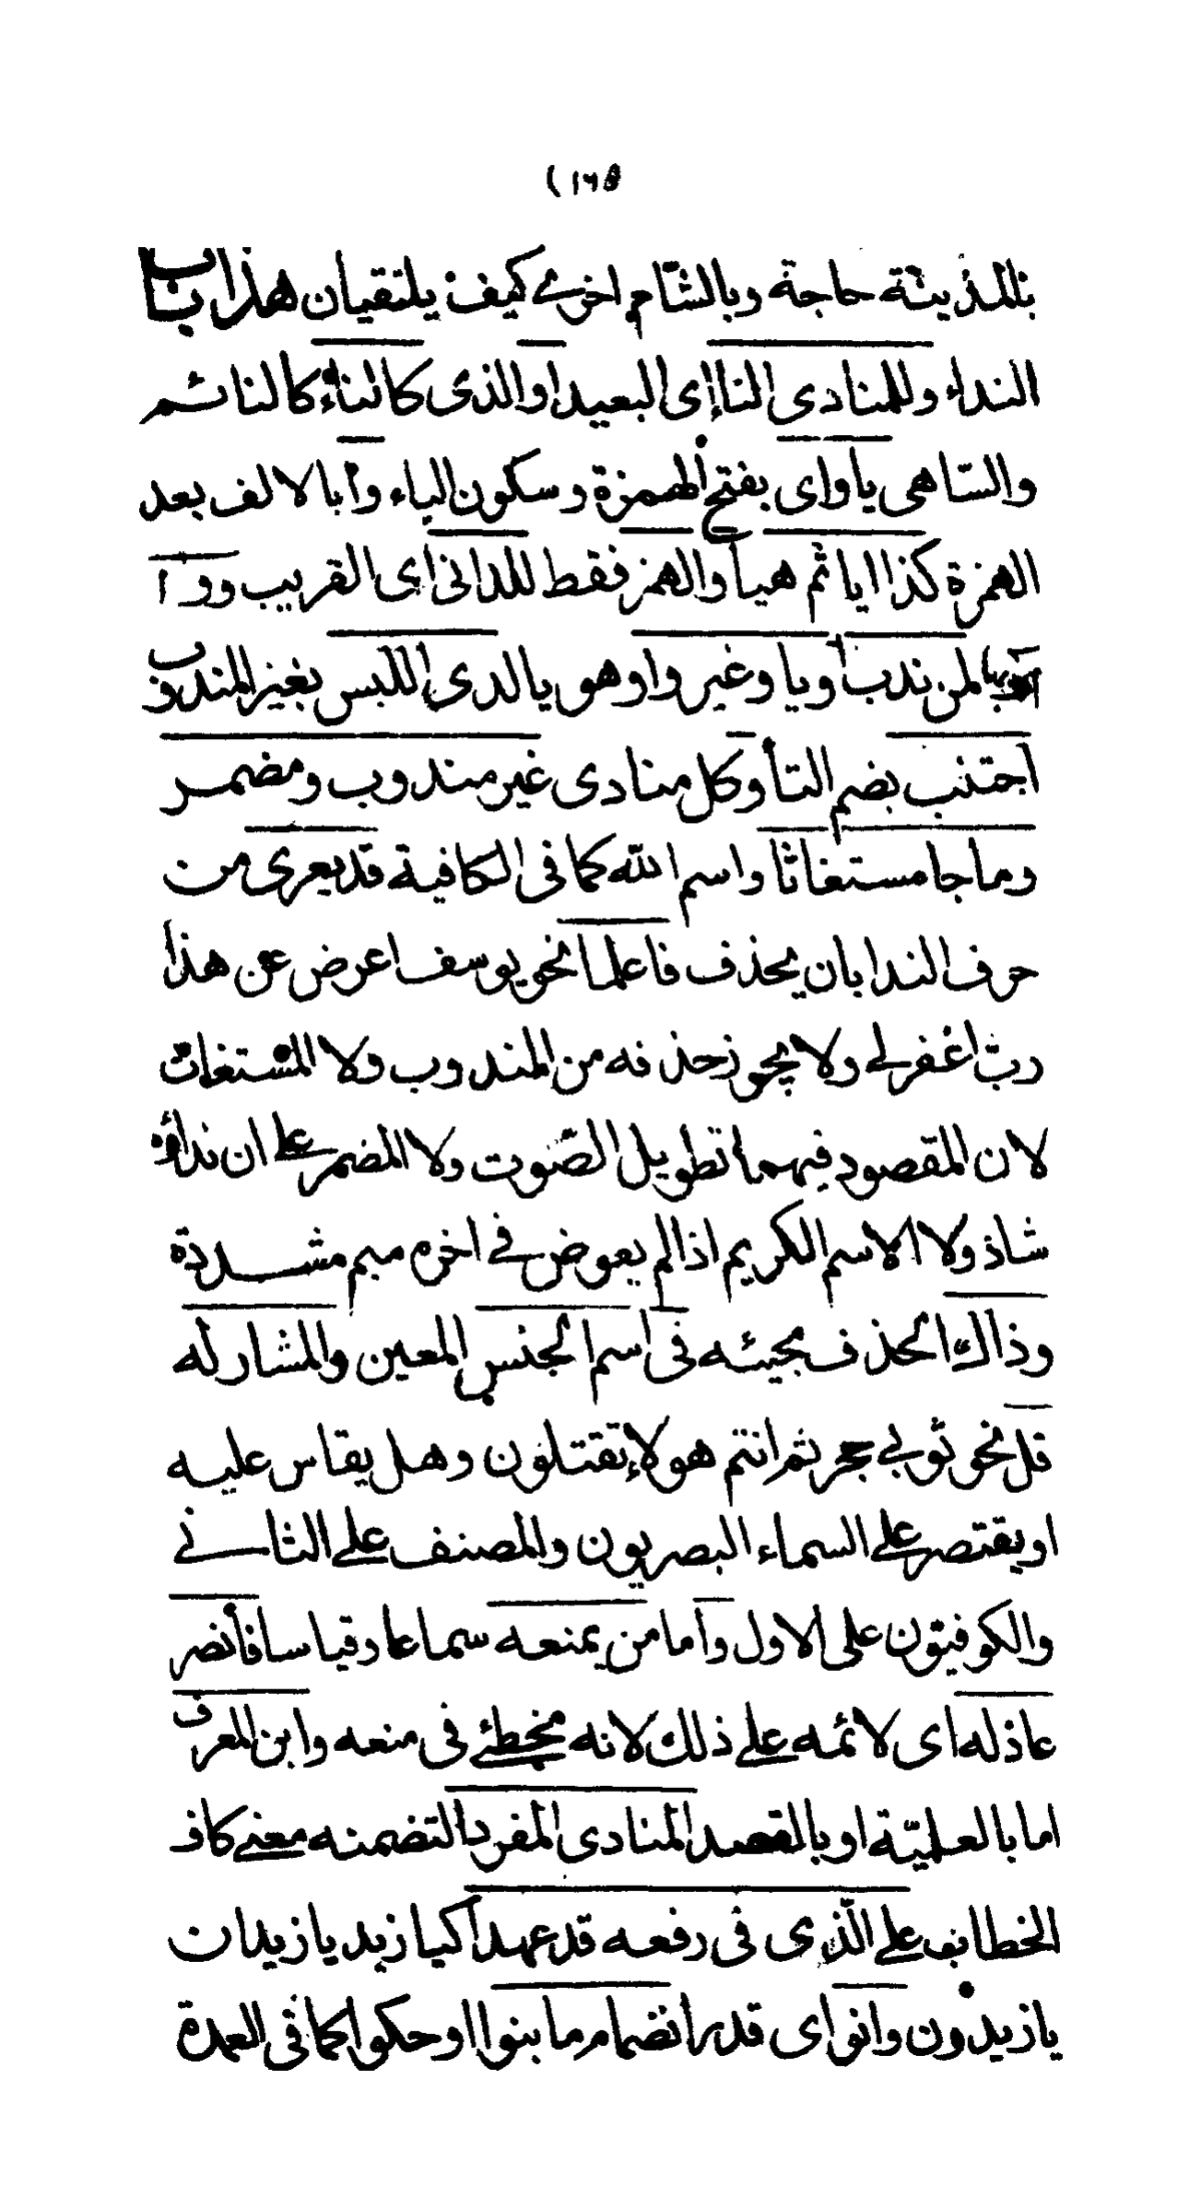 (١٢٥
بالمدينة حاجة وبالشام اخرى كيف يلتقيان هذا باب
النداء وللمنادى النائى البعيد او الذى كالناء كالنائم
والساهى يا واى بفتح الهمزة وسكون الياء وآ بالالف بعد
الهمزة كذا ايا ثم هيا والهمز فقط للدانى اى القريب ووا
لمن ندب او يا وغير وا وهو يا لدى اللبس بغير المندوب
اجتنب بضم التا وكل منادى غير مندوب ومضمر
وما جا مستغاثا واسم الله كما فى الكافية قد يعرى من
حرف الندا بان يحذف فاعلما نحو يوسف اعرض عن هذا
رب اغفر لى ولا يجوز حذفه من المندوب ولا المستغاث
لان المقصود فيهما تطويل الصوت ولا المضمر على ان نداؤه
شاذ ولا الاسم الكريم اذا لم يعوض فى اخره ميم مشددة
وذاك الحذف مجيئه فى اسم الجنس المعين والمشار له
قل نحو ثوبى حجر ثم انتم هولإ تقتلون وهل يقاس عليه
او يقتصر على السماء البصريون والمصنف على الثانى
والكوفيون على الاول وأما من يمنعه سماعا وقياسا فأنصر
عاذله اى لائمه على ذلك لانه مخطئ فى منعه وابن المعرف
اما بالعلمية او بالقصد المنادى المفردا لتضمنه معنى كاف
الخطاب على الذى فى رفعه قد عهدا كيا زيد يا زيدان
يا زيدون وانو اى قدر انضمام ما بنوا او حكوا كما فى العمدة